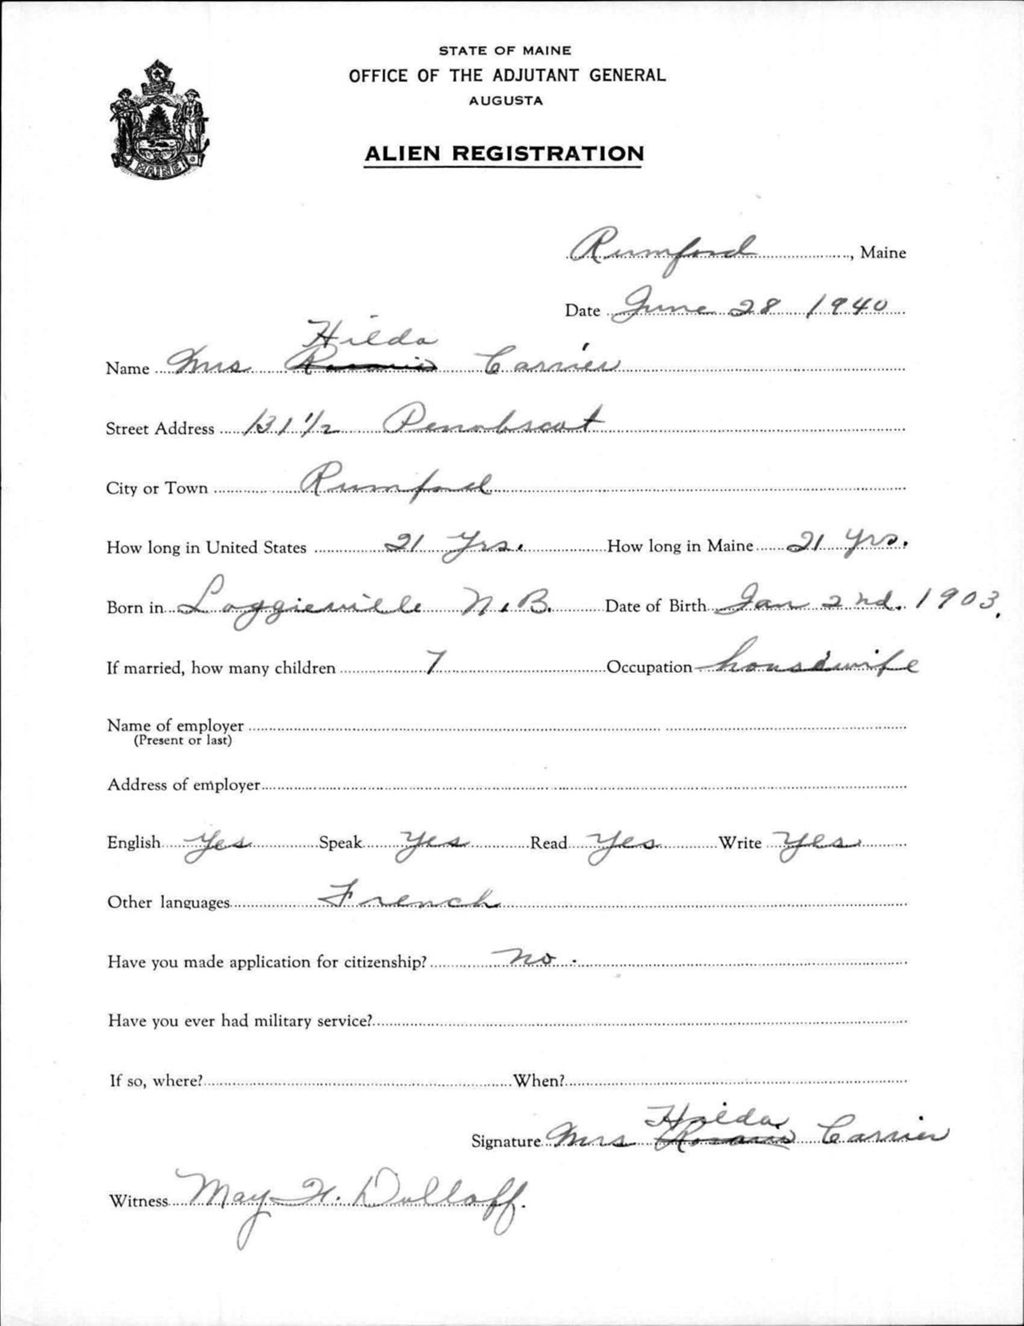 STATE OF MAINE
OFFICE OF THE ADJUTANT GENERAL
AUGUSTA
ALIEN REGISTRATION
MAINE
Rumford, Maine
Date June 28 1940
Hilda
Name Mrs Rosario Carrier
Street Address 131 1/2 Penobscot
City or Town Rumford
How long in United States 21 yrs. How long in Maine 21 yrs.
Born in Loggieville N.B. Date of Birth Jan 2nd. 1903.
If married, how many children 7 Occupation housewife
Name of employer
(Present or last)
Address of employer
English Yes Speak Yes Read Yes Write Yes
Other languages French
Have you made application for citizenship? No.
Have you ever had military service?
If so, where? When?
Hilda
Signature Mrs Rosario Carrier
Witness May H. Dolloff.